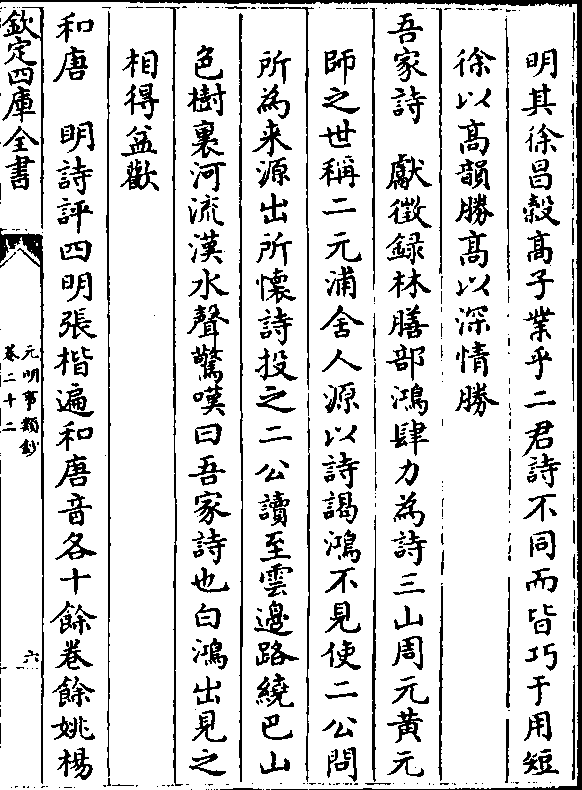 明其徐昌榖髙子業乎二君詩不同而皆巧于用短
徐以髙韻勝髙以深情勝
吾家詩　獻徴録林膳部鴻肆力為詩三山周元黄元
師之世稱二元浦舍人源以詩謁鴻不見使二公問
所為来源出所懐詩投之二公讀至雲邉路繞巴山
色樹裏河流漢水聲驚嘆曰吾家詩也白鴻出見之
相得益歡
和唐　明詩評四明張楷遍和唐音各十餘巻餘姚楊
欽定四庫全書
元明事類鈔
巻二十二
六